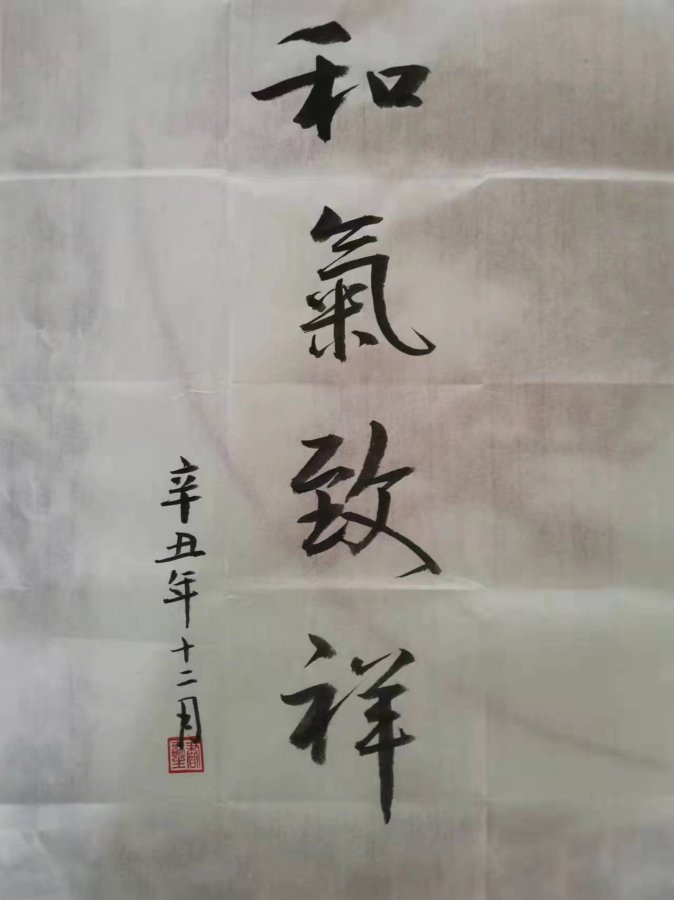 和氣致祥
辛丑年十二月